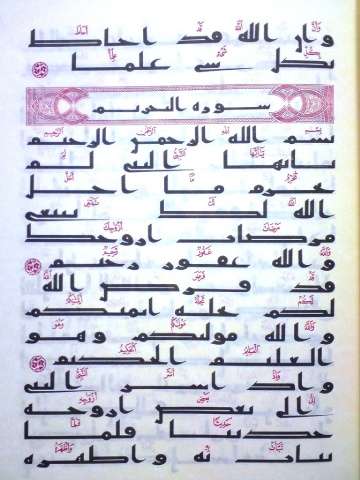 وان الله قد احاط
بكل شي علما
سورة التحريم
بسم الله الرحمن الرحيم
يايها النبي لم
تحرم ما احل
الله لك تبتغي
مرضات ازوجك
والله غفور رحيم
قد فرض الله
لكم تحلة ايمنكم
والله موليكم وهو
العليم الحكيم
واذ اسر النبي
الى بعض ازوجه
حديثا فلما
نبات به واظهره